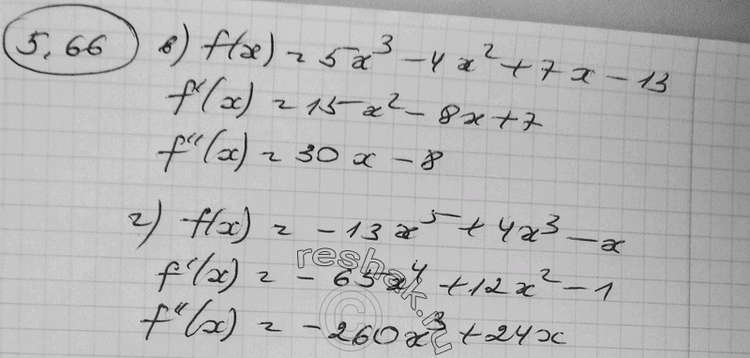 5.66 в) f(x) = 5x³ - 4x² + 7x - 13
f'(x) = 15x² - 8x + 7
f''(x) = 30x - 8
г) f(x) = -13x⁵ + 4x³ - x
f'(x) = -65x⁴ + 12x² - 1
f''(x) = -260x³ + 24x
reshak.ru